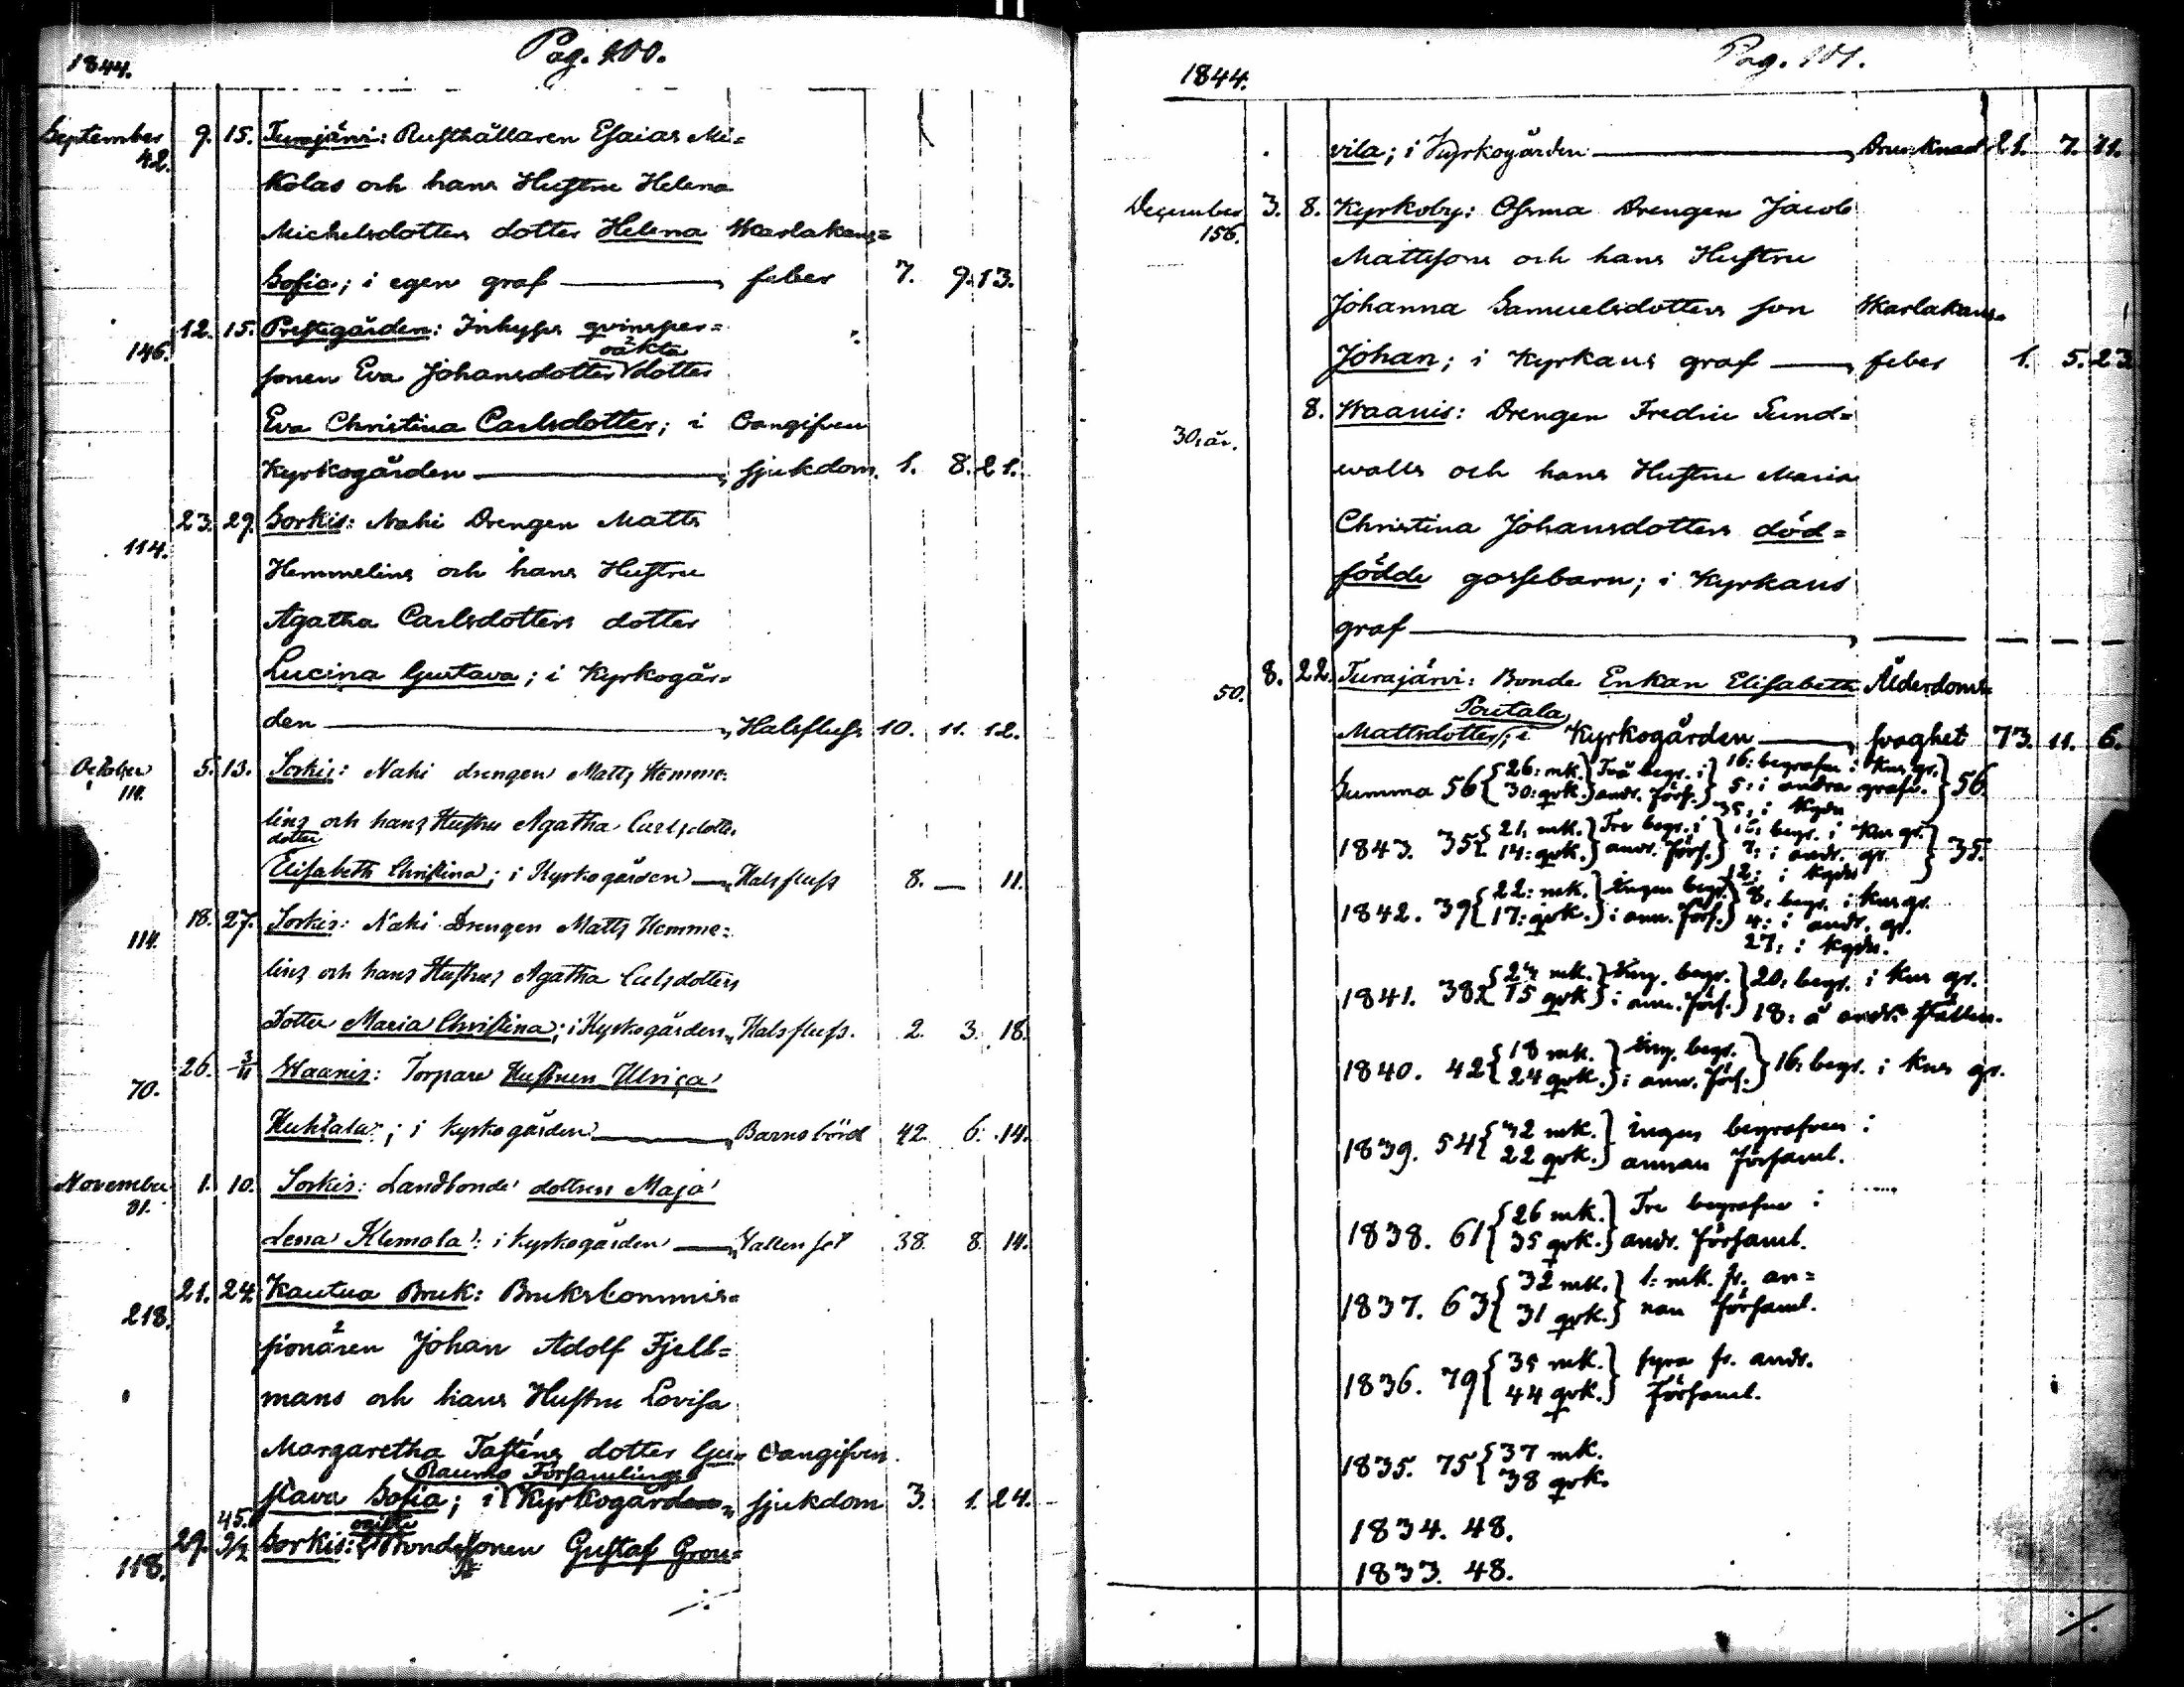 Pag. 100.
1844.
September 9. 15. Turajärvi: Rusthållaren Esaias Mi=
42.
kolas och hans Hustru Helena
Michelsdotters dotter Helena Skarlakans=
Sofia; i egen graf — feber 7. 9. 13.
12. 15. Prestegården: Inhyses qvinsper=
146.
oäkta
sonen Eva Johansdotters dotter
Eva Christina Carlsdotter; i Oangifven
Kyrkogården — sjukdom. 1. 8. 21.
23. 29. Sorkis: Nahi Drengen Matts
114.
Hemmelins och hans Hustru
Agatha Carlsdotters dotter
Lucina Gustava; i Kyrkogår=
den — Halsfluss 10. 11. 12.
October 5. 13. Sorkis: Nahi drengen Matts Hemme=
114.
lins och hans Hustrus Agatha Carlsdotters
dotter
Elisabeth Christina; i Kyrkogården — Halsfluss 8. — 11.
18. 27. Sorkis: Nahi Drengen Matts Hemme=
114.
lins och hans Hustrus Agatha Carlsdotters
Dotter Maria Christina; i Kyrkogården Halsfluss. 2. 3. 18.
26. 3/11 Waanis: Torpare Hustrun Ulrica
70.
Huhtala; i kyrkogården — Barnsbörd 42. 6. 14.
November 1. 10. Sorkis: Landbonde dottren Maja
81.
Lena Klemola: i kyrkogården — Vattensot 38. 8. 14.
21. 24. Kautua Bruk: Brukscommis=
218.
sionären Johan Adolf Fjell=
mans och hans Hustru Lovisa
Margaretha Tasténs dotter Gu= Oangifven
Raumo Församlings
stava Sofia; i Kyrkogård — sjukdom 3. 1. 24.
45. ogifte
29. 9/2 Sorkis: Bondesonen Gustaf Grou=
118.
Pag. 101.
1844.
vila; i Kyrkogården — Drunknad 21. 7. 11.
December 3. 8. Kyrkoby: Ohrma Drengen Jacob
156.
Mattssons och hans Hustru
Johanna Samuelsdotters son Skarlakans=
Johan; i Kyrkans graf — feber 1. 5. 23
8. Waanis: Drengen Fredric Sund=
30. år.
walls och hans Hustru Maria
Christina Johansdotters död=
födde gossebarn; i Kyrkans
graf — — — —
8. 22. Turajärvi: Bonde Enkan Elisabeth Ålderdoms=
50.
Poutala
Mattsdotter; i Kyrkogården — svaghet 73. 11. 6.
Summa 56 { 26: mk. 30: qvk. } Två begr. i andr. förs. } 16: begrafne i Kns gr. 5: i andra grafv. 35: i Kgdn } 56.
1843. 35 { 21: mk. 14: qvk. } Tre begr. i andr. förs. } 16: begr. i Kns gr. 7: i andr. gr. 12: i Kgdn } 35.
1842. 39 { 22: mk. 17: qvk. } Ingen begr. i ann. förs. } 8: begr. i Kns gr. 4: i andr. gr. 27: i Kgdn.
1841. 38 { 23 mk. 15 qvk } Ing. begr. i ann. förs. } 20: begr. i Kns gr. 18: å andr. ställen.
1840. 42 { 18 mk. 24 qvk. } Ing. begr. i ann. förs. } 16: begr. i Kns gr.
1839. 54 { 32 mk. 22 qvk. } ingen begrafven i annan församl.
1838. 61 { 26 mk. 35 qvk. } Tre begrafne i andr. församl.
1837. 63 { 32 mk. 31 qvk. } 1: mk. fr. an= nan församl.
1836. 79 { 35 mk. 44 qvk. } fyra fr. andr. församl.
1835. 75 { 37 mk. 38 qvk.
1834. 48.
1833. 48.